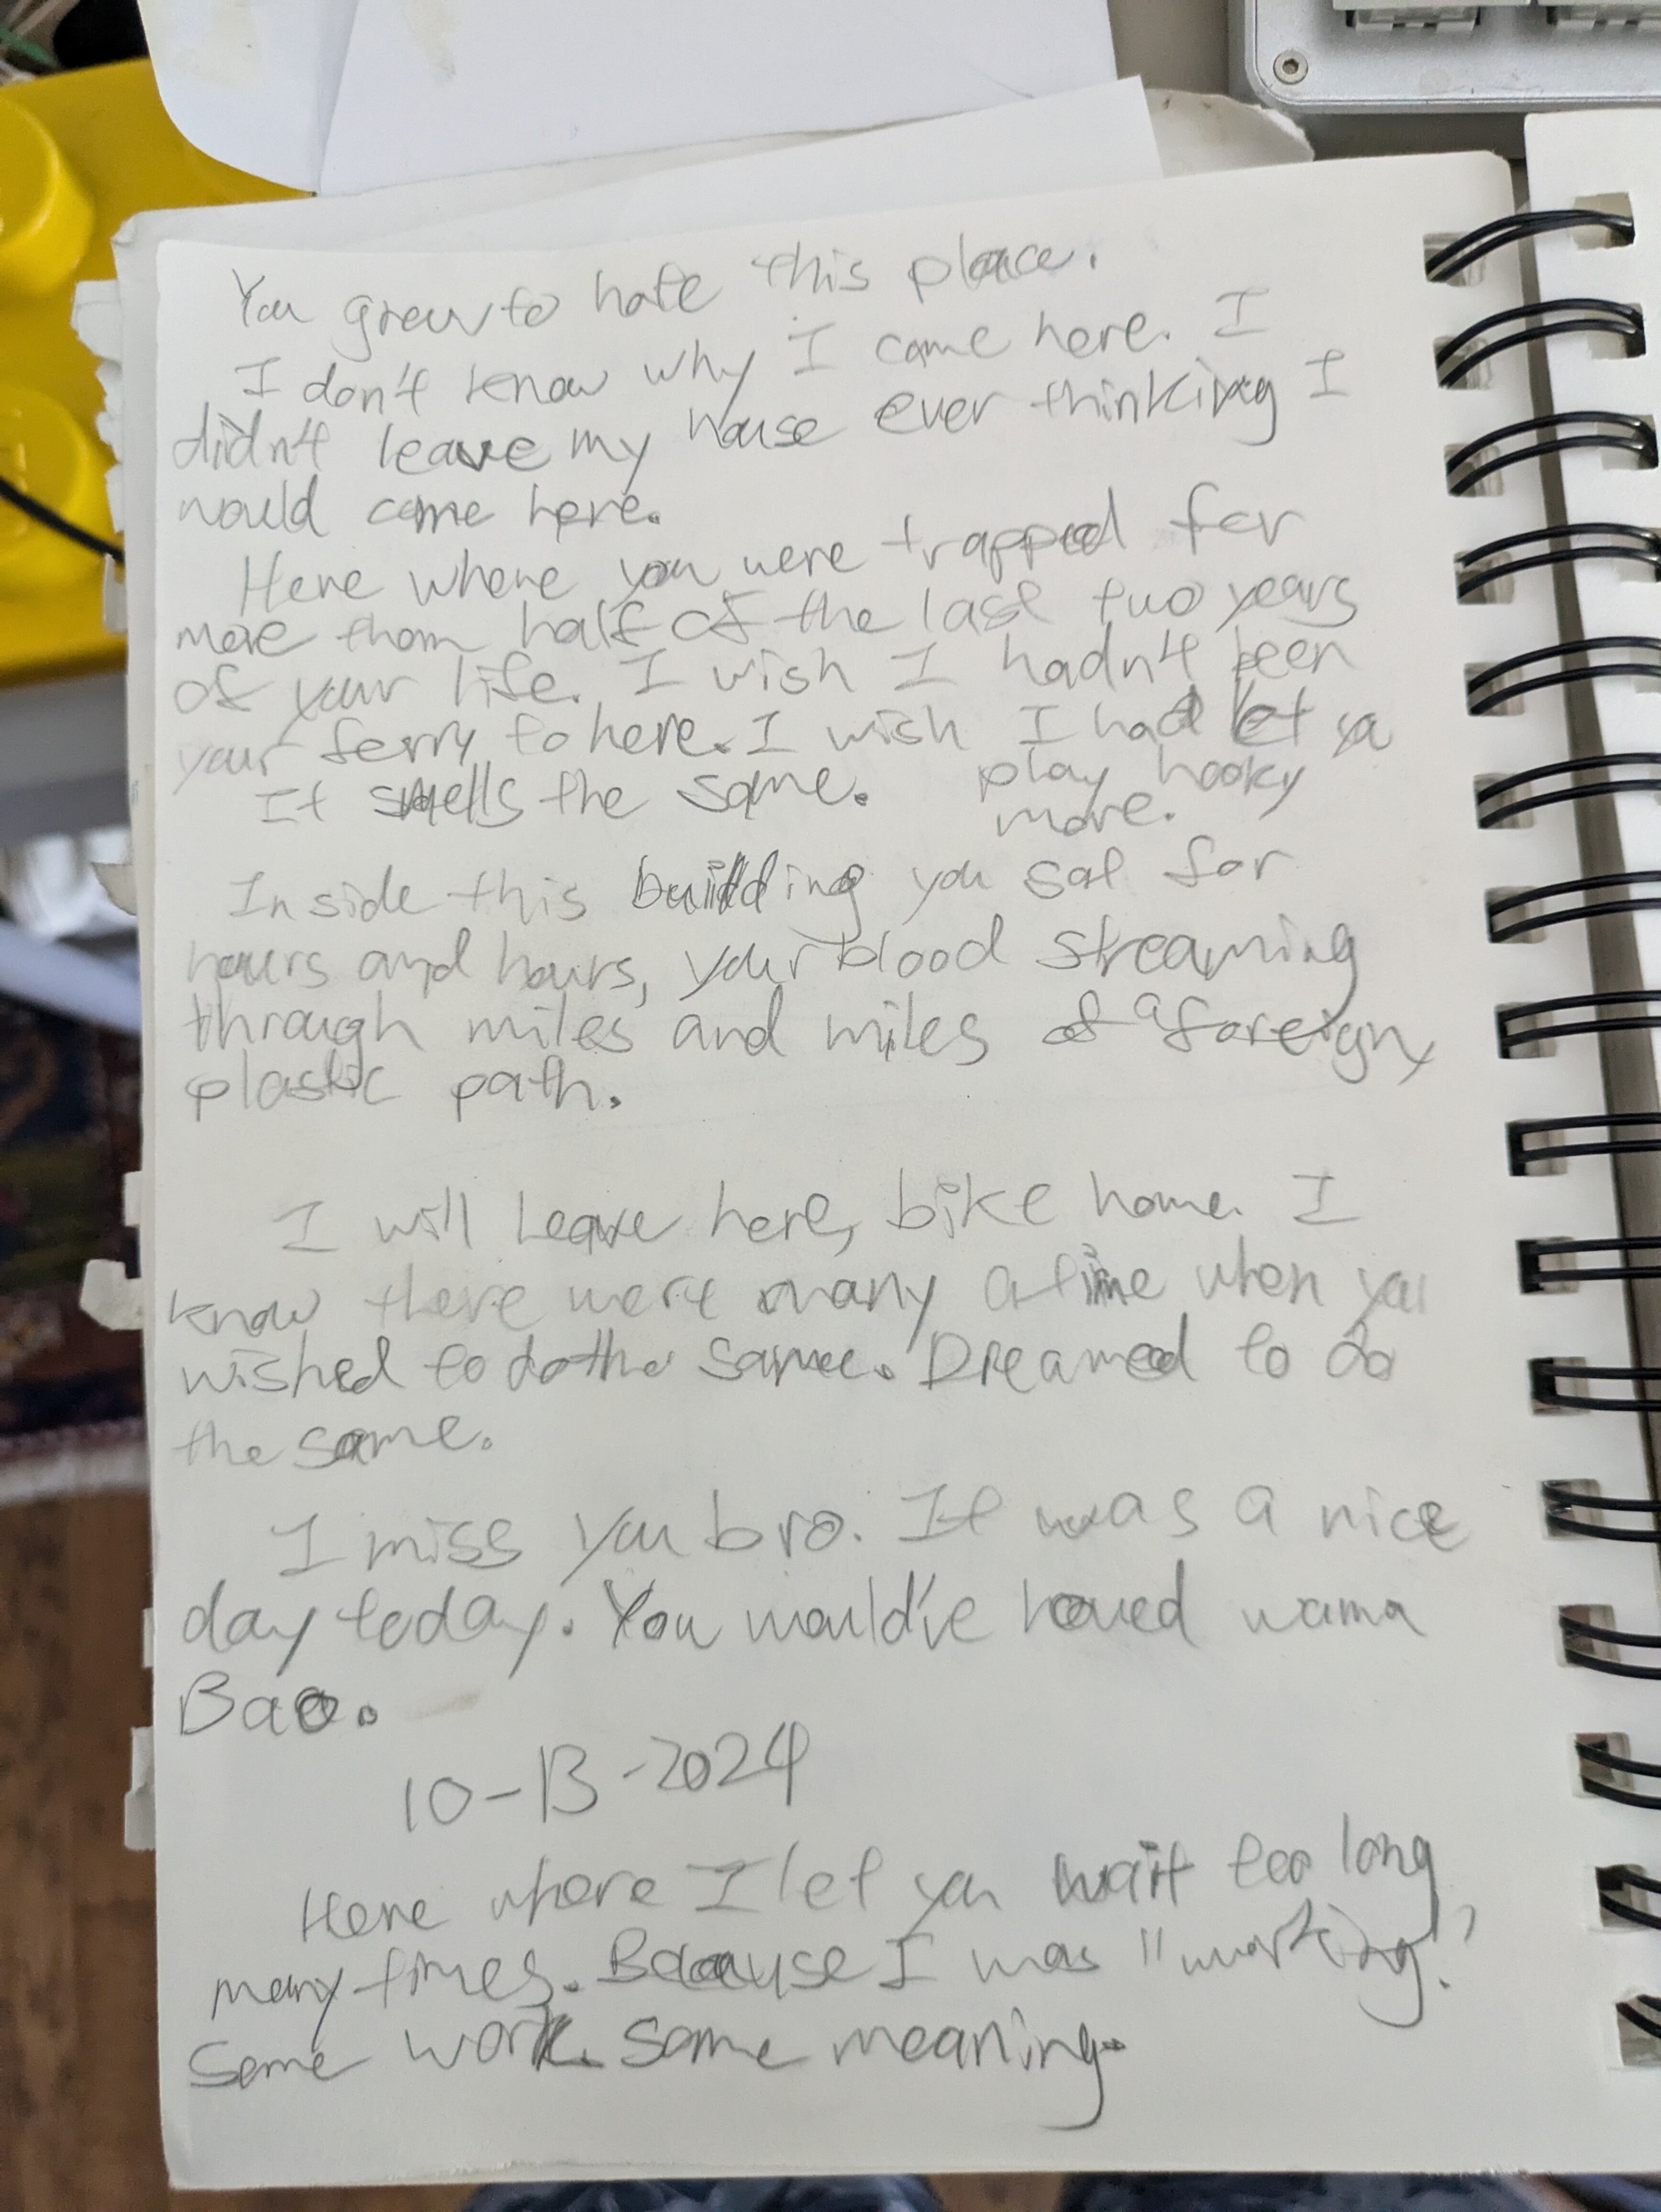 You grew to hate this place.
I don't know why I came here. I
didn't leave my house ever thinking I
would come here.
Here where you were trapped for
more than half of the last two years
of your life. I wish I hadn't been
your ferry to here. I wish I had let ya
play hooky
more.
It smells the same.
Inside this building you sat for
hours and hours, your blood streaming
through miles and miles of a foreign,
plastic path.
I will leave here, bike home. I
know there were many a time when you
wished to do the same. Dreamed to do
the same.
I miss you bro. It was a nice
day today. You would've loved
Bao.
10-13-2024
Here where I let you wait too long
many times. Because I was "working".
Some work. Some meaning.